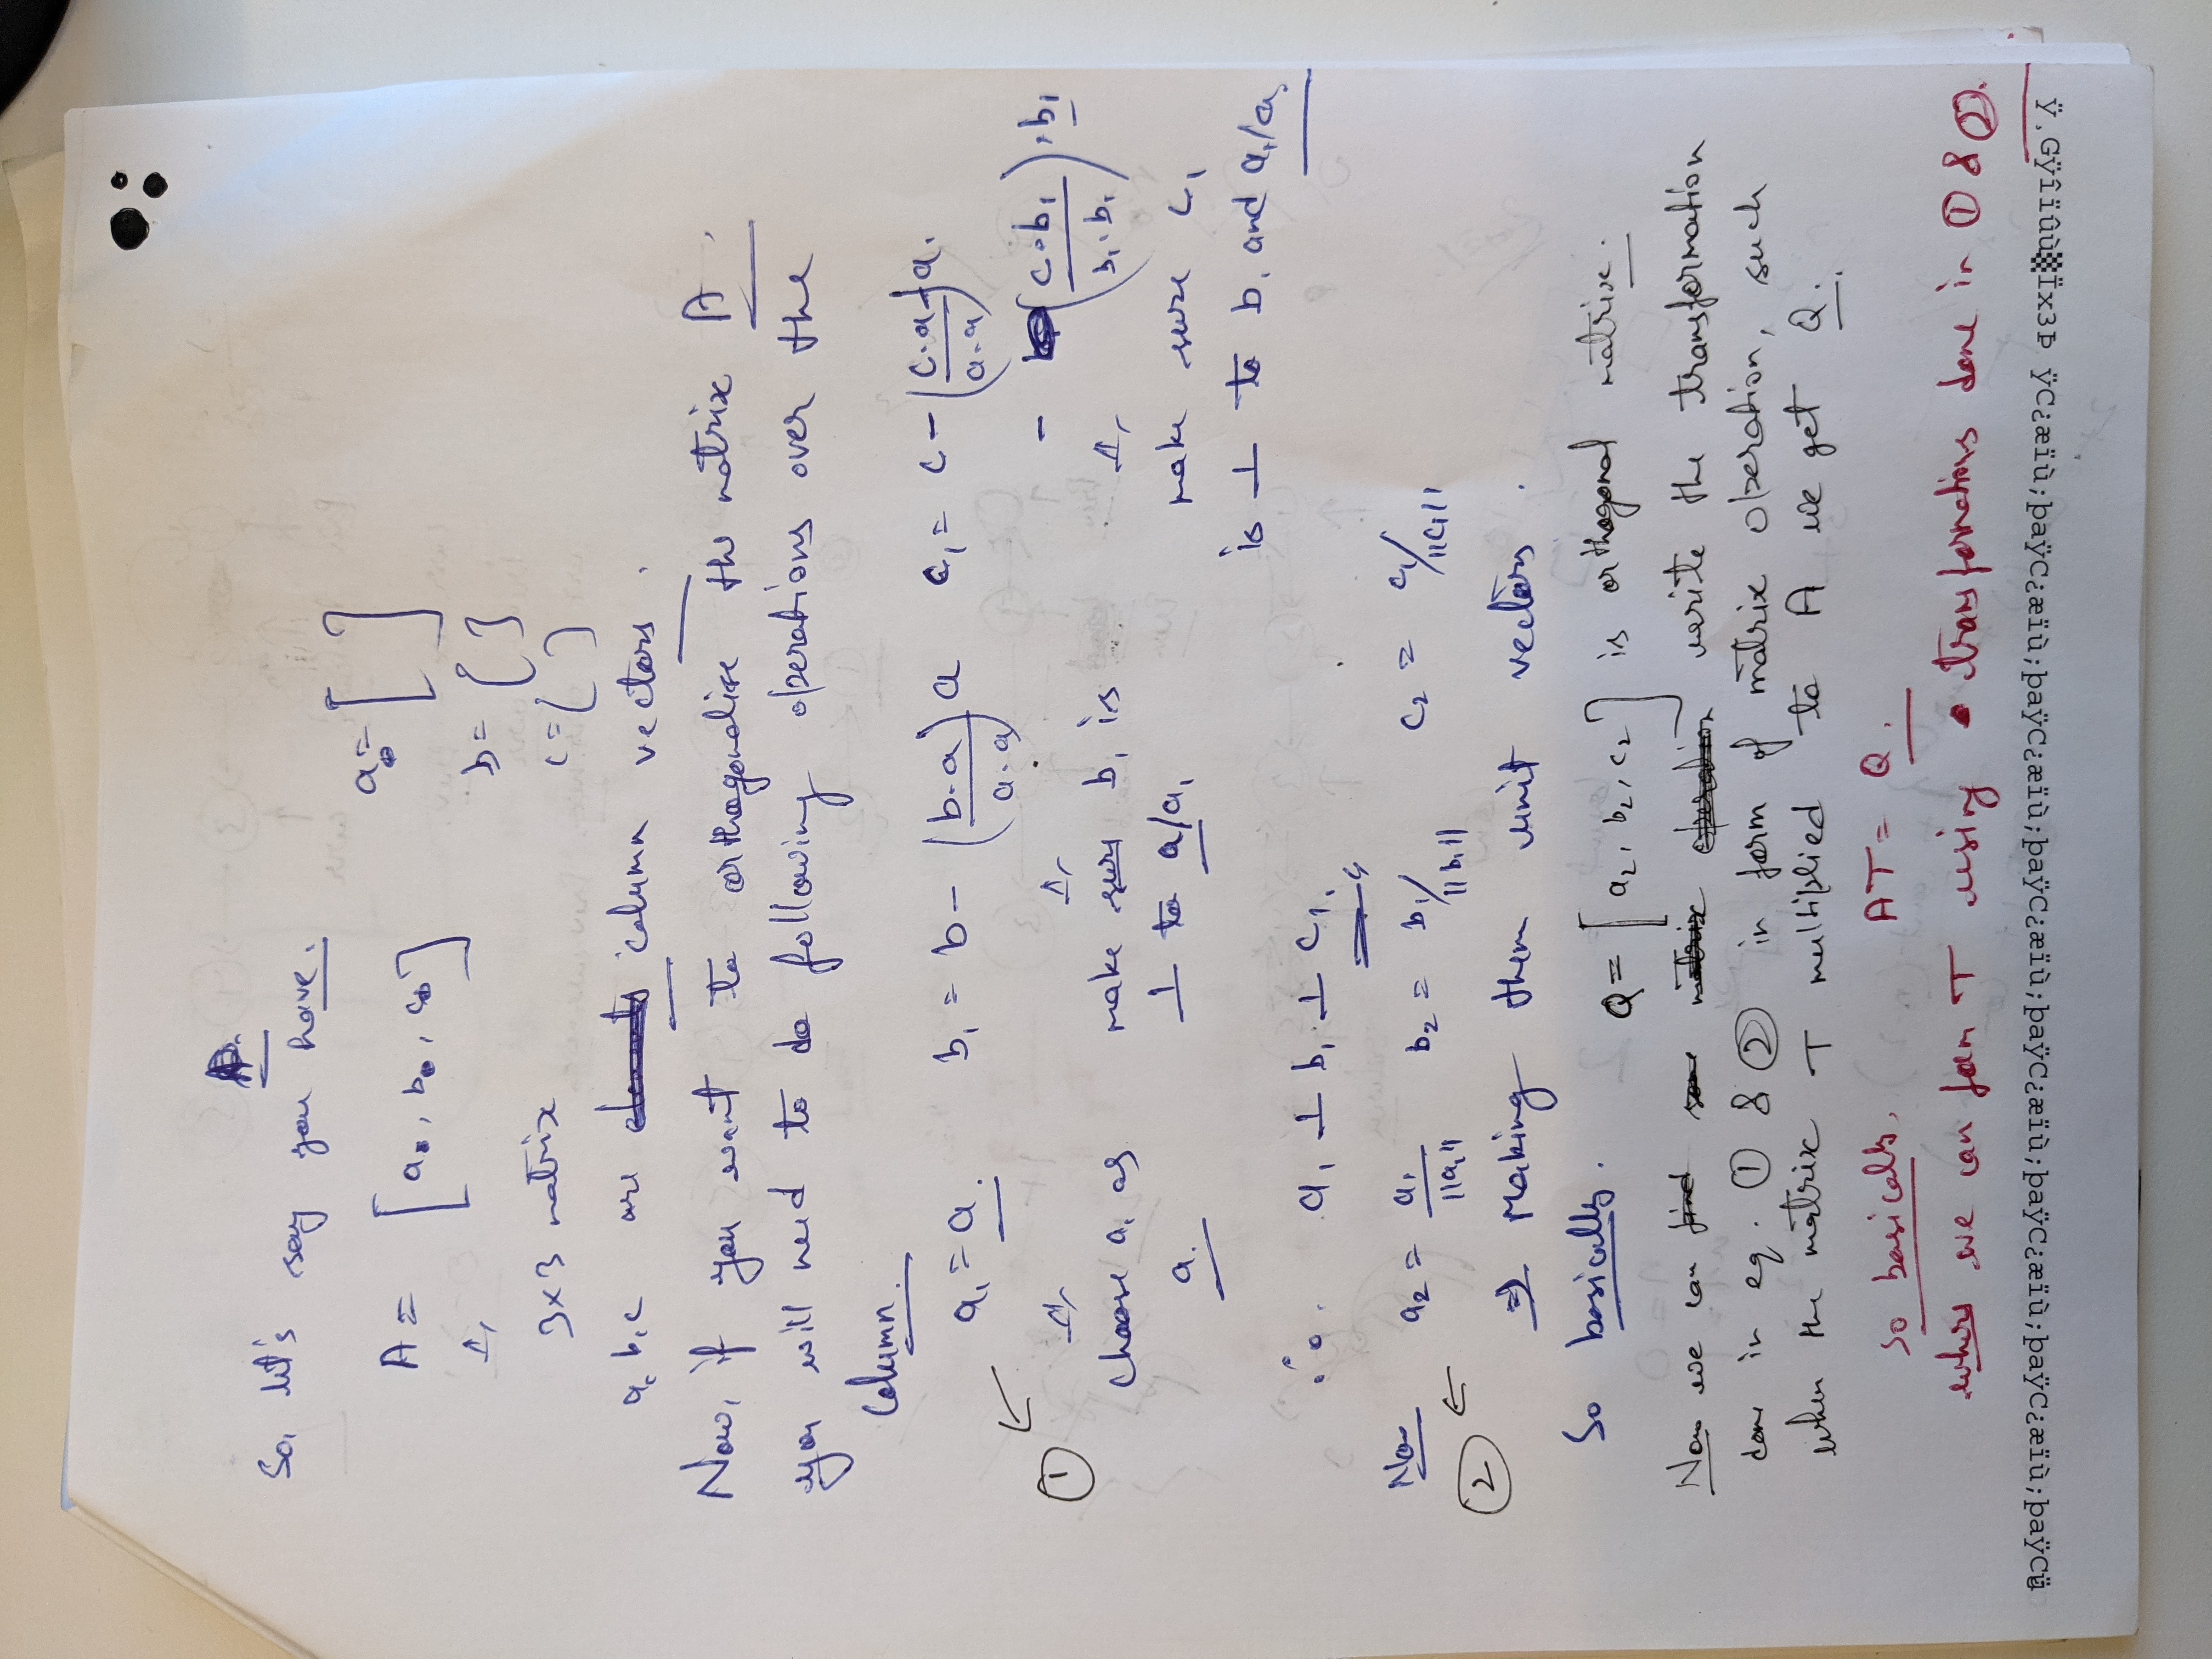 So, let's say you have.
A = [a₀, b₀, c₀] a₀ = [ ]
↑ b = [ ]
3×3 matrix c = [ ]
a, b, c are column vectors.
Now, if you want to orthogonalise the matrix A.
you will need to do following operations over the
column.
a₁ = a. b₁ = b - (b·a / a·a) a c₁ = c - (c·a / a·a) a.
① ← - (c·b₁ / b₁·b₁)·b₁
↑ ↑ ↑
choose a₁ as make sure b₁ is make sure c₁
a. ⊥ to a/a₁ is ⊥ to b₁ and a₁/a
∴ a₁ ⊥ b₁ ⊥ c₁.
Now a₂ = a₁ / ||a₁|| b₂ = b₁/||b₁|| c₂ = c₁/||c₁||
② ←
⇒ Making them unit vectors.
So basically. Q = [a₂, b₂, c₂] is orthogonal matrix.
Now we can ~~find some matrix operation~~ write the transformation
done in eq. ① & ② in form of matrix operation, such
when the matrix T multiplied to A we get Q.
so basically, AT = Q.
where we can form T using transformations done in ① & ②.